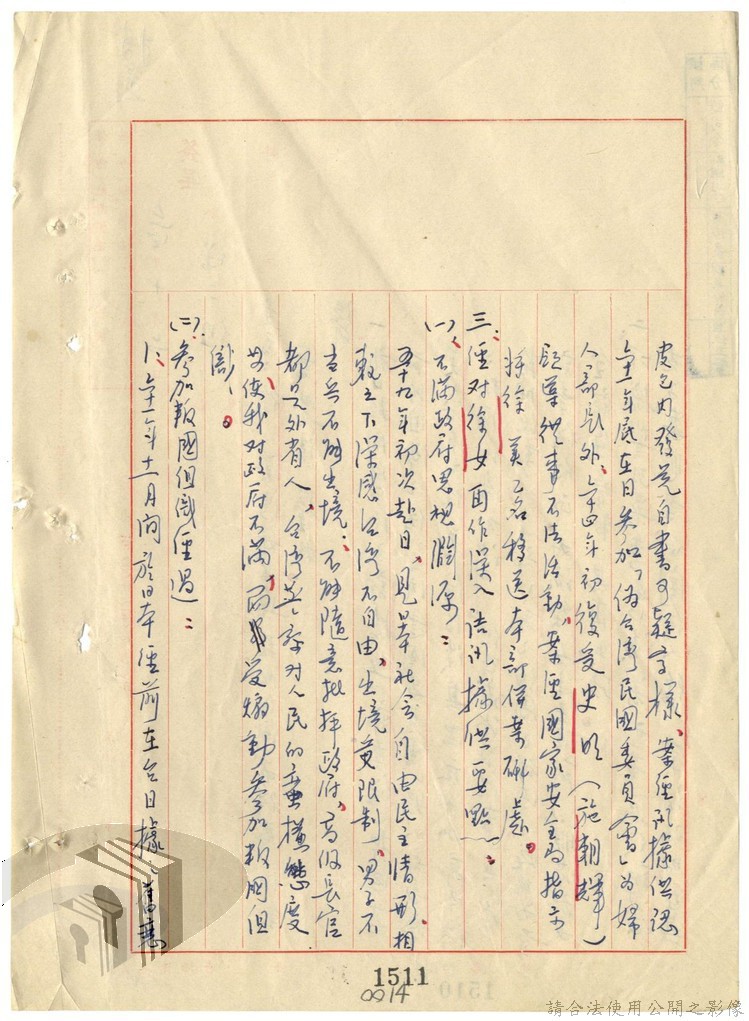 皮包內發見自書可疑字樣、案經訊據供認
六十一年底在日參加「偽台湾民國委員會」為婦
人部長外、六十四年初復受史明（施朝暉）
從事不法活動、案經國家安全局指示
將徐 美乙名移送本部併案研處。
三、經对徐女面作深入訊據供要點：
(一)、不滿政府思想淵源：
五十九年初次赴日、見日本社会自由民主情形、相
較之下深感台湾不自由、出境要限制、男子不
不能出境、不能隨意批評政府、高級長官
都是外省人、台湾警察对人民的蛮橫態度
使我对政府不滿、受煽動參加叛國組
(二)、參加叛國組織經過：
1、六十一年十一月間於日本經前在台日據
1511
0014
請合法使用公開之影像